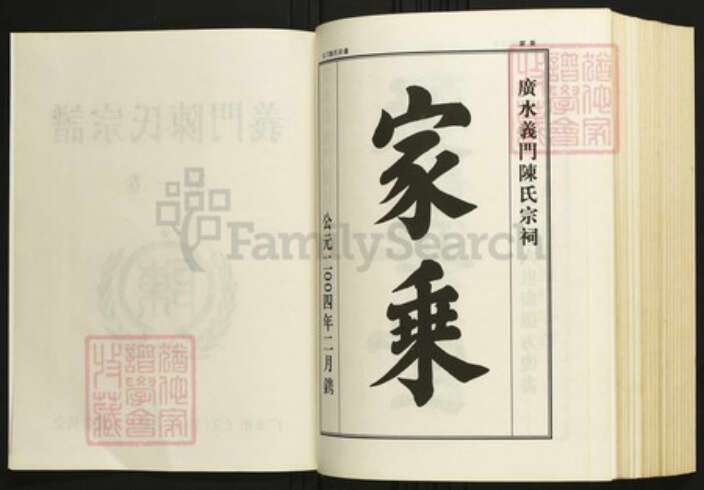 廣水義門陳氏宗祠
家乘
公元二00四年二月鐫
義門陳氏宗譜
卷
陳
猶他家譜學會收藏
猶他家譜學會收藏
FamilySearch